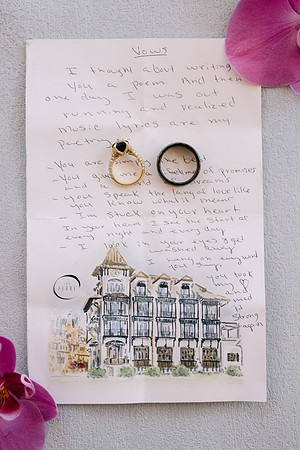 Vows
I thought about writing
you a poem. And then
one day I was out
running and realized
music lyrics are my
poetry
- You are simply the best
- You give me of promises
and a
- you speak the lang of love like
you know what it means
- I'm stuck on your heart
In your heart I see the start of
every night and every day
- I look in your eyes I get
I hang on every word
you say
you took
my
and
made it
strong